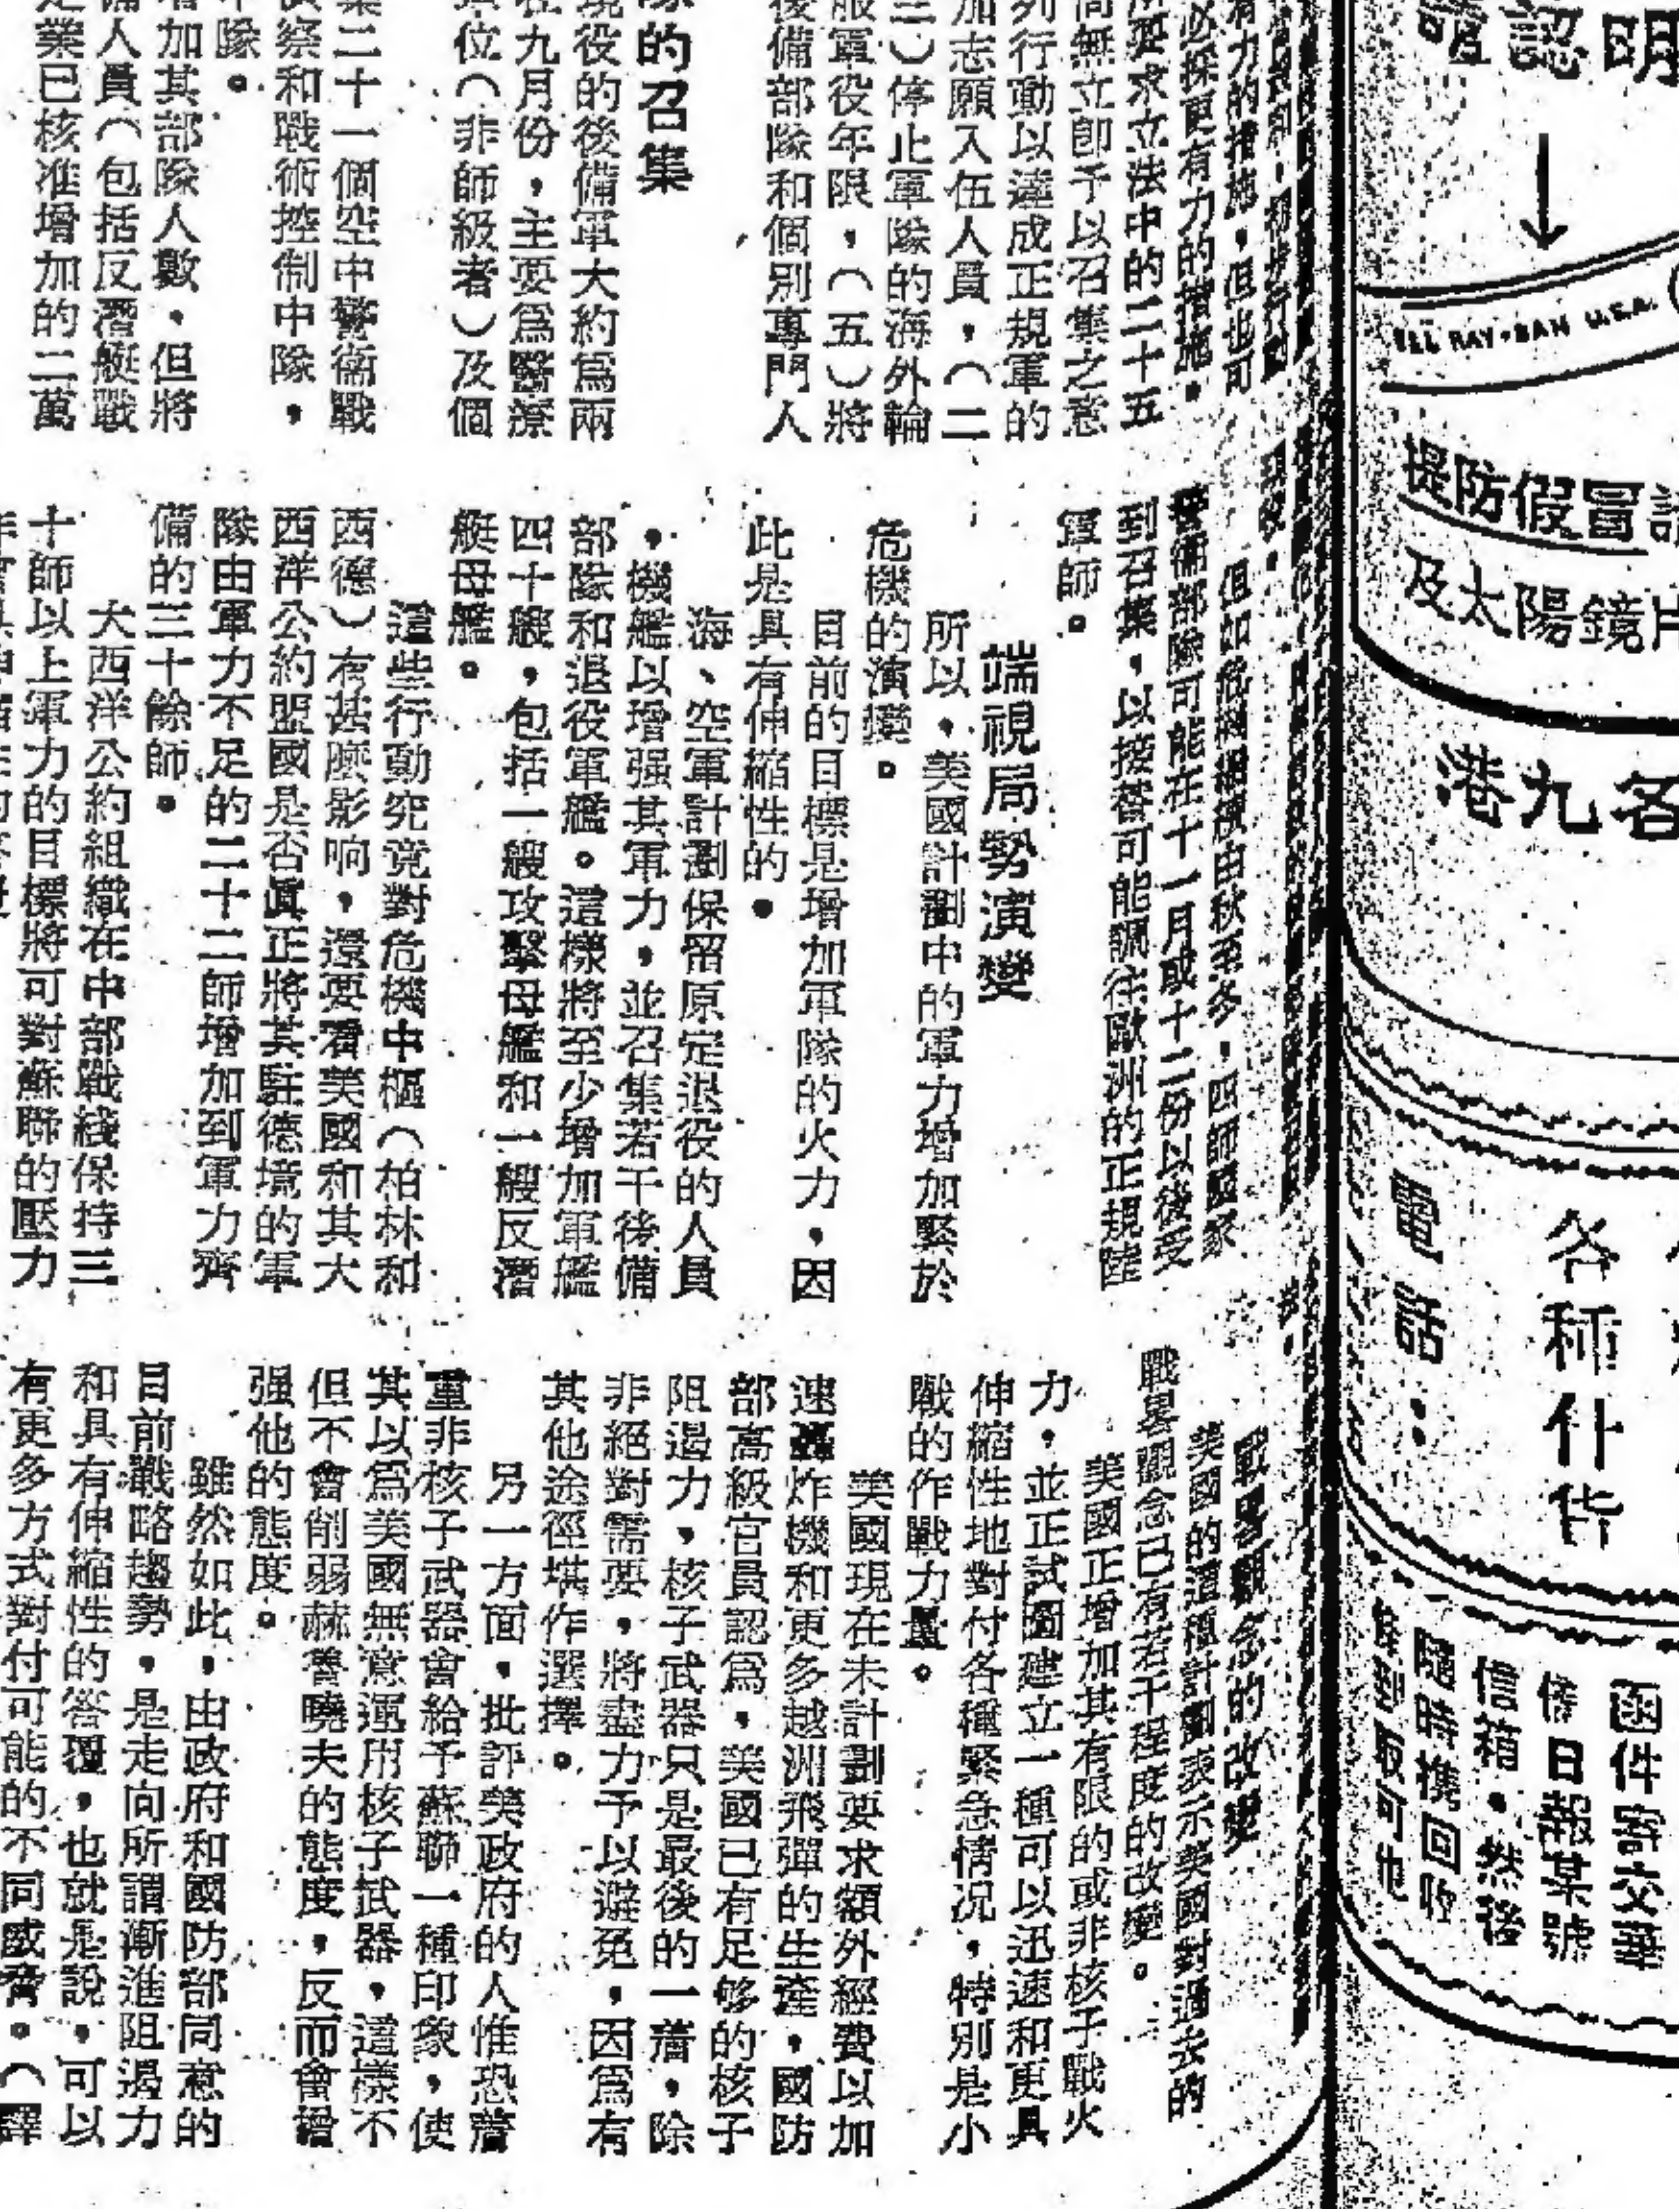 明
認
BAN U.S.A.
提防假冒
及太陽鏡片
港九各
各種什貨
電話：
函件寄交華
僑日報某號
信箱・然後
隨時携回收
有力的措施，但也可
必採更有力的措施。
所要求立法中的二十五
尚無立卽予以召集之意
列行動以達成正規軍的
加志願入伍人員，（二
三）停止軍隊的海外輪
服軍役年限，（五）將
後備部隊和個別專門人
隊的召集
現役的後備軍大約爲兩
在九月份，主要爲醫療
單位（非師級者）及個
集二十一個空中警衞戰
偵察和戰術控制中隊，
隊。
增加其部隊人數，但將
備人員（包括反潛艇戰
是業已核准增加的二萬
但如危機繼續由秋至冬，四師國家
警衞部隊可能在十一月或十二份以後受
到召集，以接替可能調往歐洲的正規陸
軍師。
端視局勢演變
所以，美國計劃中的軍力增加緊於
危機的演變。
目前的目標是增加軍隊的火力，因
此是具有伸縮性的。
海、空軍計劃保留原定退役的人員
，機艦以增强其軍力，並召集若干後備
部隊和退役軍艦。這樣將至少增加軍艦
四十艘，包括一艘攻擊母艦和一艘反潛
艇母艦。
這些行動究竟對危機中樞（柏林和
西德）有甚麽影响，還要看美國和其大
西洋公約盟國是否眞正將其駐德境的軍
隊由軍力不足的二十二師增加到軍力齊
備的三十餘師。
大西洋公約組織在中部戰綫保持三
十師以上軍力的目標將可對蘇聯的壓力
戰畧觀念的改變
美國的這種計劃表示美國對過去的
戰畧觀念已有若干程度的改變。
美國正增加其有限的或非核子戰火
力，並正試圖建立一種可以迅速和更具
伸縮性地對付各種緊急情况，特別是小
戰的作戰力量。
美國現在未計劃要求額外經費以加
速轟炸機和更多越洲飛彈的生產，國防
部高級官員認爲，美國已有足够的核子
阻遏力，核子武器只是最後的一着，除
非絕對需要，將盡力予以避免，因爲有
其他途徑堪作選擇。
另一方面，批評美政府的人惟恐着
重非核子武器會給予蘇聯一種印象，使
其以爲美國無意運用核子武器，這樣不
但不會削弱赫魯曉夫的態度，反而會增
强他的態度。
雖然如此，由政府和國防部同意的
目前戰略趨勢，是走向所謂漸進阻遏力
和具有伸縮性的答覆，也就是說，可以
有更多方式對付可能的不同威脅。（譯